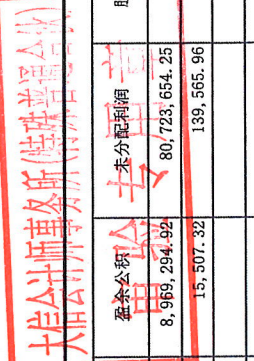 大信会计师事务所(特殊普通合伙)
审验专用章
盈余公积 未分配利润
8,969,294.92 80,723,654.25
15,507.32 139,565.96